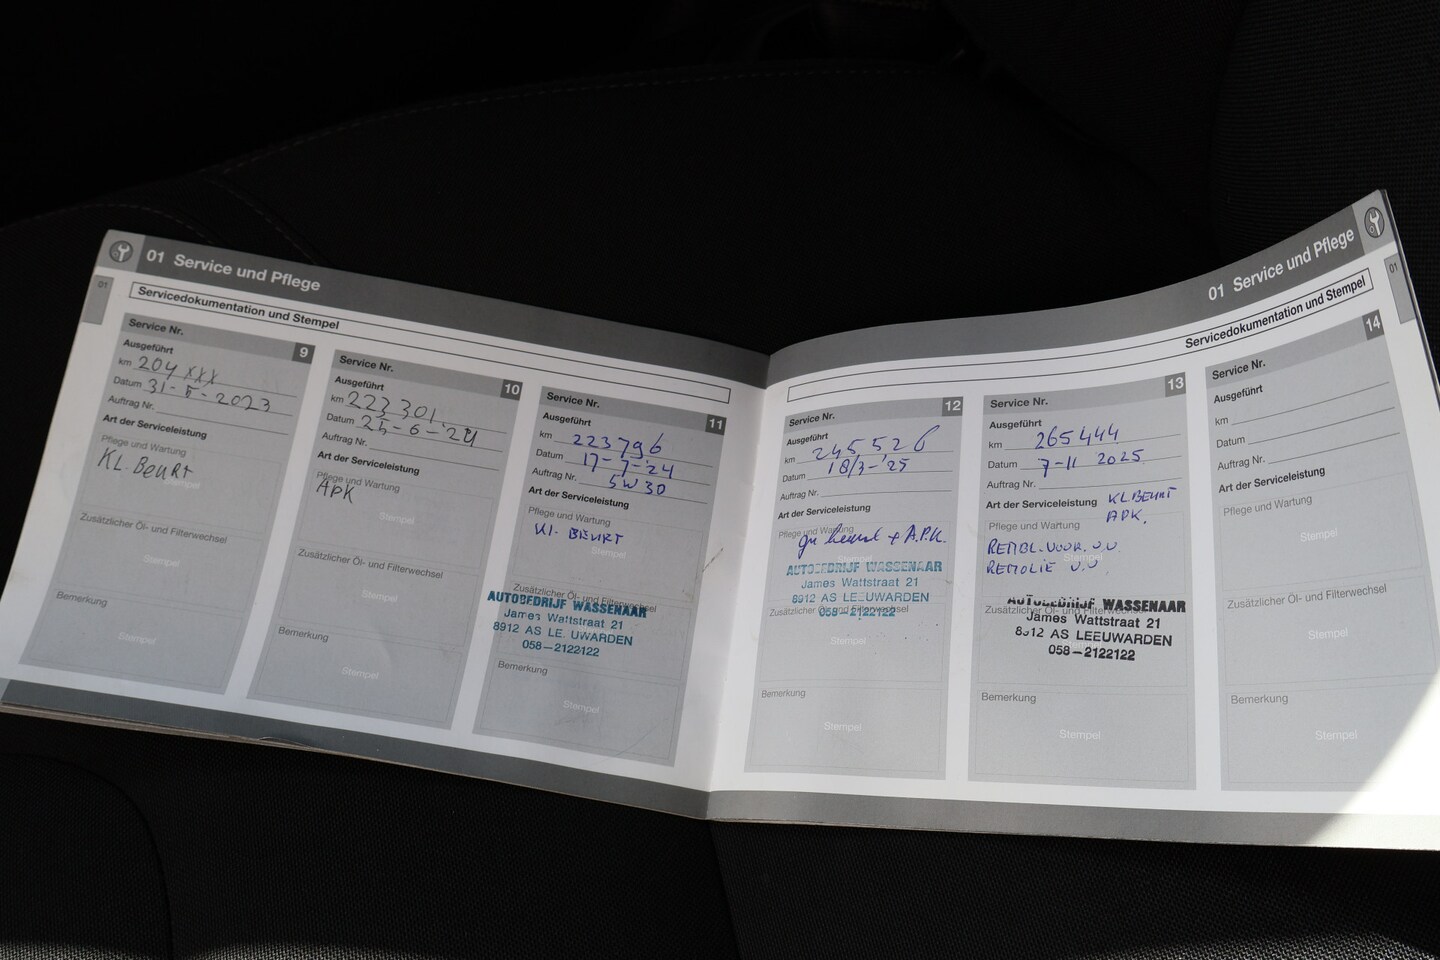 01 Service und Pflege
01
Servicedokumentation und Stempel
Service Nr. 9
Ausgeführt
km 204 xxx
Datum 31-5-2023
Auftrag Nr.
Art der Serviceleistung
Pflege und Wartung
KL. BEURT
Stempel
Zusätzlicher Öl- und Filterwechsel
Stempel
Bemerkung
Stempel
Service Nr. 10
Ausgeführt
km 223 301
Datum 25-6-'24
Auftrag Nr.
Art der Serviceleistung
Pflege und Wartung
APK
Stempel
Zusätzlicher Öl- und Filterwechsel
Stempel
Bemerkung
Stempel
Service Nr. 11
Ausgeführt
km 223796
Datum 17-7-'24
Auftrag Nr. 5W30
Art der Serviceleistung
Pflege und Wartung
Kl. BEURT
Stempel
Zusätzlicher Öl- und Filterwechsel
AUTOBEDRIJF WASSENAAR
James Wattstraat 21
8912 AS LEEUWARDEN
058-2122122
Bemerkung
Stempel
01 Service und Pflege
01
Servicedokumentation und Stempel
Service Nr. 12
Ausgeführt
km 245,526
Datum 18/3-'25
Auftrag Nr.
Art der Serviceleistung
Pflege und Wartung
+ A.P.K.
Stempel
AUTOBEDRIJF WASSENAAR
James Wattstraat 21
8912 AS LEEUWARDEN
Zusätzlicher Öl- und Filterwechsel
058-2122122
Bemerkung
Stempel
Service Nr. 13
Ausgeführt
km 265444
Datum 7-11 2025
Auftrag Nr.
Art der Serviceleistung KL BEURT
Pflege und Wartung APK.
REMBL. VOOR. V.V.
Stempel
REMOLIE V.V.
AUTOBEDRIJF WASSENAAR
Zusätzlicher Öl- und Filterwechsel
James Wattstraat 21
8912 AS LEEUWARDEN
058-2122122
Bemerkung
Stempel
Service Nr. 14
Ausgeführt
km
Datum
Auftrag Nr.
Art der Serviceleistung
Pflege und Wartung
Stempel
Zusätzlicher Öl- und Filterwechsel
Stempel
Bemerkung
Stempel